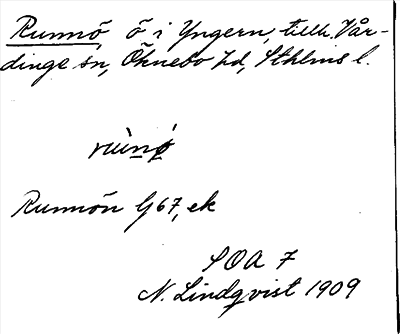 Runnö, ö i Yngern, tillh. Vår-
dinge sn, Öknebo hd, Sthlms l.
Runnön G 67, ek
SOA 7
N. Lindqvist 1909